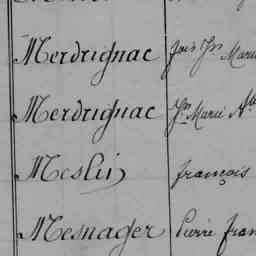 Merdrignac Jn Marie
Merdrignac Jn Marie
Meslin françois
Mesnager Pierre fran